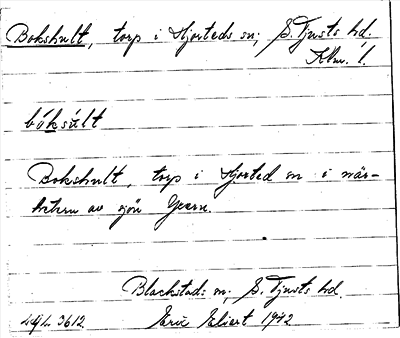 Bokshult, torp i Hjorteds sn; S. Tjusts hd.
Klm. l.
bóksúlt
Bokshult, torp i Hjorted sn i när-
heten av sjön Yxern.
Blackstads sn, S. Tjusts hd.
3612. Eric Elgert 1942